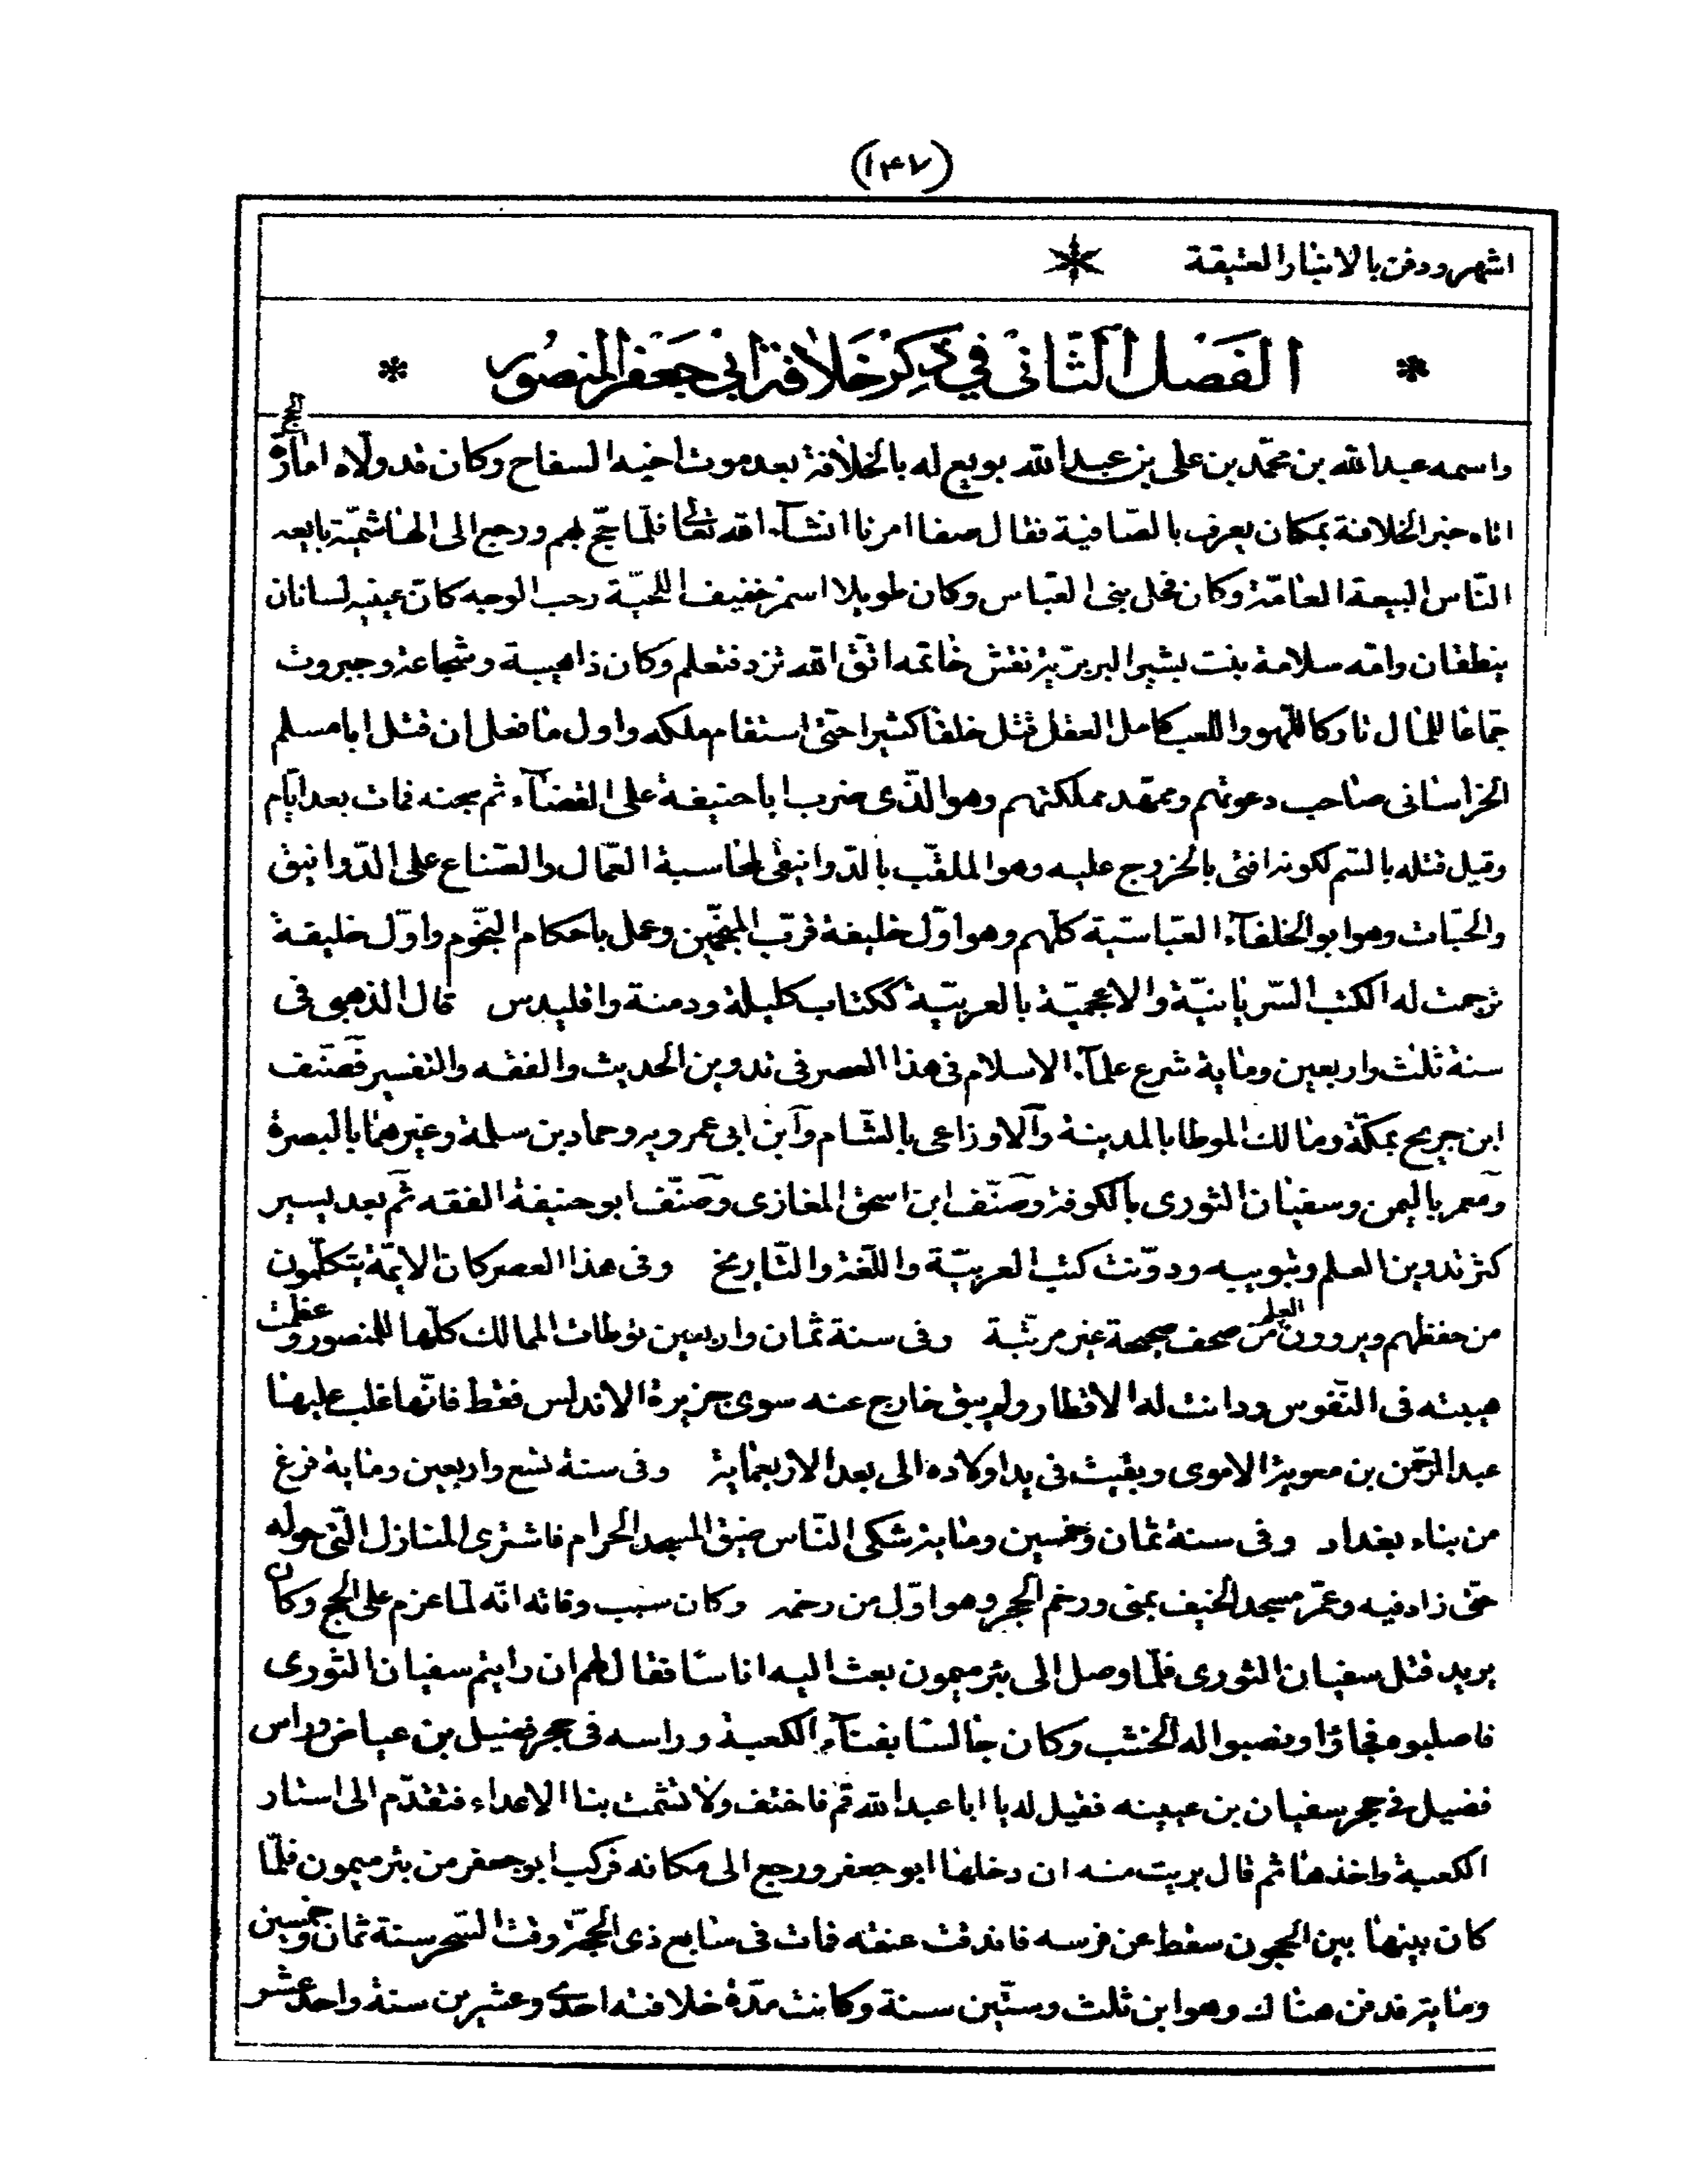 (١٤٧)
اشهر ودفن بالانبار العتيقة
الفَصْل الثّانى فى ذِكِرْ خَلَافة ابىْ جَعْفر المنصُور
واسمه عبدالله بن محمّد بن على بن عبدالله بويع له بالخلافة بعد موت اخيه السفاح وكان قد ولّاه امارة الحج
اتاه خبر الخلافة بمكان يعرف بالصّافية فقال صفا امرنا انشآء الله تعالى فلمّا حجّ بهم ورجع الى الهاشميّة بايعه
النّاس البيعة العامّة وكان فحل بنى العبّاس وكان طويلا اسمر خفيف اللحيّة رحب الوجه كانّ عينيه لسانان
ينطقان وامّه سلامة بنت بشير البربريّة نقش خاتمه اتّق الله تزد فتعلم وكان ذا هيبة وشجاعة وجبروت
جمّاعا للمال تاركا للّهو واللعب كامل العقل قتل خلقا كثيرا حتّى استقام ملكه واول ما فعل ان قتل ابا مسلم
الخراسانى صاحب دعوتهم وممهّد مملكتهم وهو الذّى ضرب ابا حنيفة على القضآء ثم سجنه فمات بعد ايّام
وقيل قتله بالسّم لكونه افتى بالخروج عليه وهو الملقّب بالدّوانيقى لمحاسبة العمّال والصّناع على الدّوانيق
والحبّات وهو ابو الخلفآء العبّاسيّة كلّهم وهو اوّل خليفة قرّب المنجّمين وعمل باحكام النّجوم واوّل خليفة
ترجمت له الكتب السّريانيّة والاعجميّة بالعربيّة ككتاب كليلة ودمنة واقليدس قال الذهبى فى
سنة ثلث واربعين ومایة شرع علمآء الاسلام فى هذا العصر فى تدوين الحديث والفقه والتفسير فصّنف
ابن جريح بمكّة ومالك الموطا بالمدينة والاوزاعى بالشّام وابن ابى عمرويه وحماد بن سلمة وغيرهما بالبصرة
ومعمر باليمن وسفيان الثورى بالكوفة وصنّف ابن اسحق المغازى وصنّف ابو حنيفة الفقه ثم بعد يسير
كثر تدوين العلم وتبويبه ودوّنت كتب العربيّة واللّغة والتّاريخ وفى هذا العصر كان الائمّة يتكلّمون
من حفظهم ويروون العلم من صحف صحيحة غير مرتّبة وفى سنة ثمان واربعين توطات الممالك كلّها للمنصور وعظمت
هيبته فى النّفوس ودانت له الاقطار ولم يبق خارج عنه سوى جزيرة الاندلس فقط فانّها غلب عليها
عبد الرّحمن بن معوية الاموى وبقيت فى يد اولاده الى بعد الاربعمایة وفى سنة تسع واربعين ومایة فرغ
من بناء بغداد وفى سنة ثمان وخمسين ومایة شكى النّاس ضيق المسجد الحرام فاشترى المنازل الّتى حوله
حتّى زاد فيه وعمّر مسجد الخيف بمنى ورخم الحجر وهو اوّل من رخمه وكان سبب وفاته انّه لمّا عزم على الحج وكان
يريد قتل سفيان الثورى فلمّا وصل الى بئر ميمون بعث اليه اناسا فقال لهم ان رايتم سفيان الثورى
فاصلبوه فجاؤا ونصبوا له الخشب وكان جالسا بفنآء الكعبة وراسه فى حجر فضيل بن عياض وراس
فضيل فى حجر سفيان بن عيينه فقيل له يا ابا عبدالله قم فاختف ولا تشمت بنا الاعداء فتقدّم الى استار
الكعبة واخذها ثم قال بريت منه ان دخلها ابو جعفر ورجع الى مكانه فركب ابو جعفر من بئر ميمون فلمّا
كان بينها بين الحجون سقط عن فرسه فاندقت عنقه فمات فى سابع ذى الحجّة وقت السّحر سنة ثمان وخمسين
ومایة فدفن هناك وهو ابن ثلث وستّين سنة وكانت مدّة خلافته احدى وعشرين سنة واحد عشر